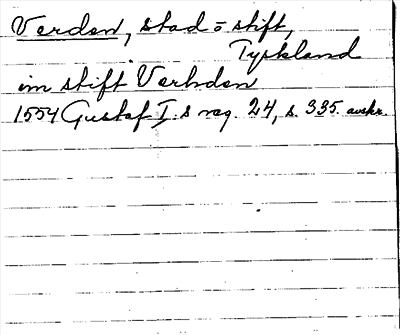 Verden, stad o stift,
Tyskland
im stift Verhden
1554 Gustaf I.s reg. 24, s. 335. avskr.